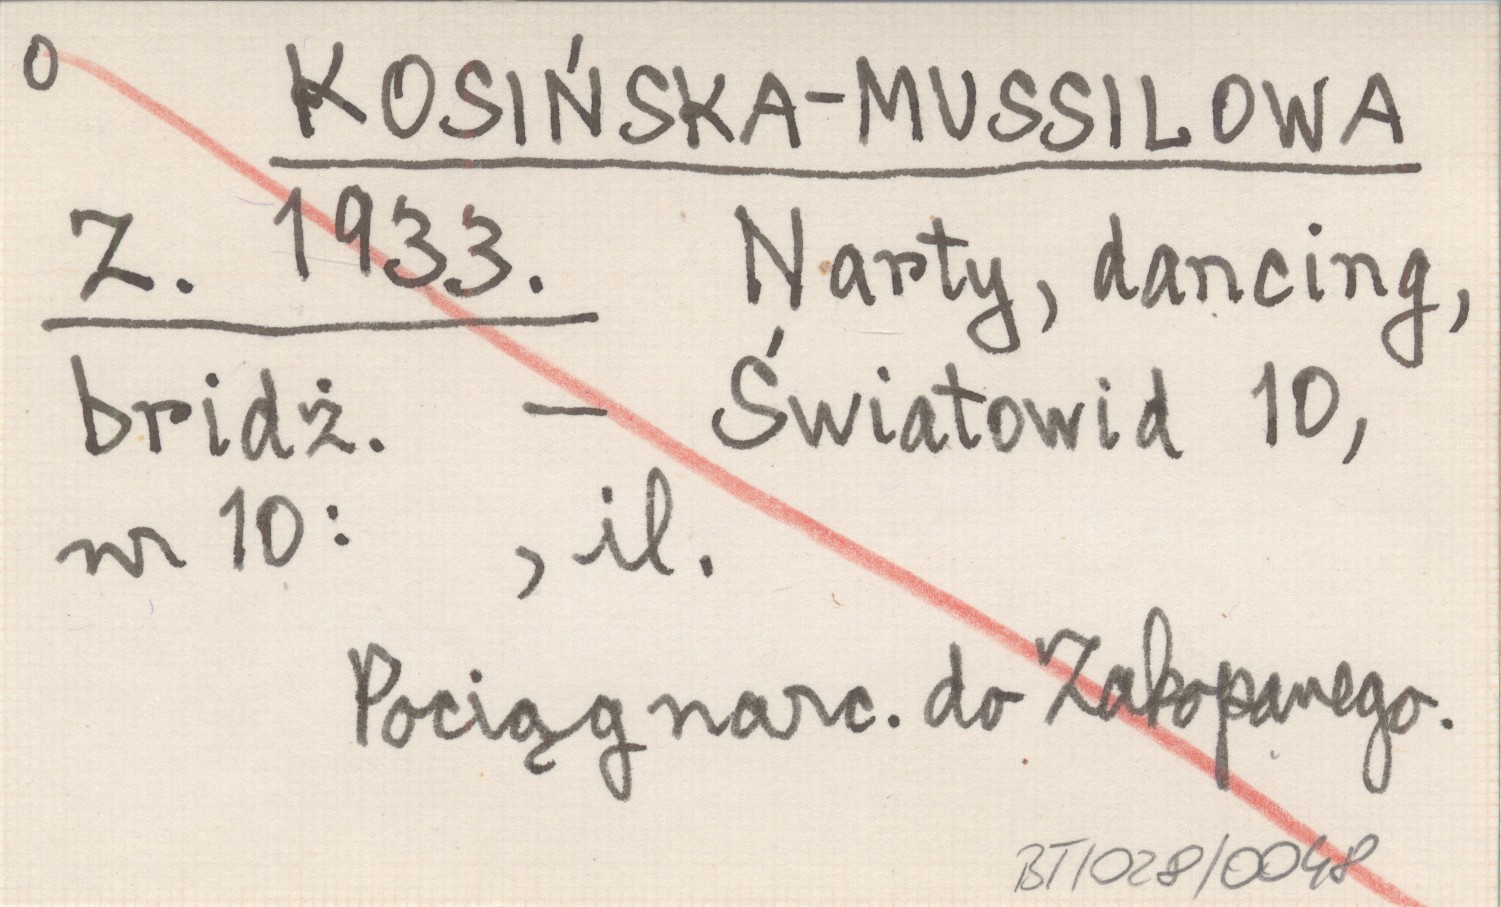 0 KOSIŃSKA-MUSSILOWA
Z. 1933. Narty, dancing,
bridż. - Światowid 10,
nr 10: , il.
Pociąg narc. do Zakopanego.
BT/028/0048